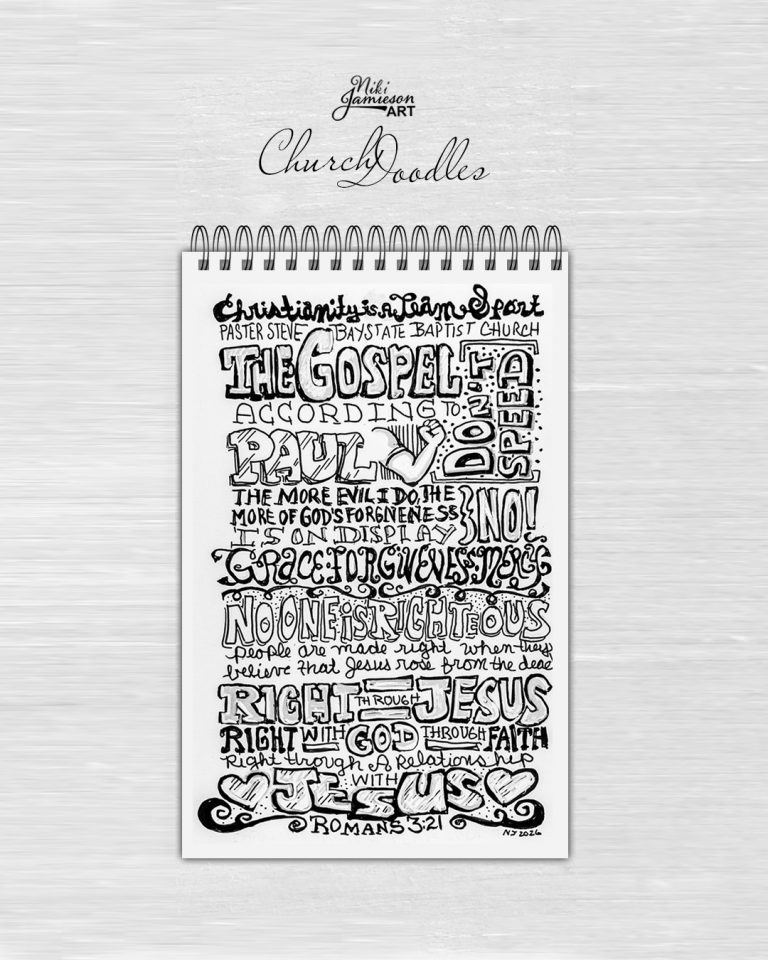 Niki
Jamieson
ART
Church Doodles
Christianity is A Team Sport
PASTER STEVE BAYSTATE BAPTIST CHURCH
THE GOSPEL
ACCORDING TO
PAUL
DON'T
SPEED
THE MORE EVIL I DO, THE
MORE OF GOD'S FORGIVENESS
IS ON DISPLAY
NO!
GRACE:FORGIVENESS:MERCY
NO ONE iS RIGHTEOUS
people are made right when they
believe that Jesus rose from the dead
RIGHT THROUGH JESUS
RIGHT WITH GOD THROUGH FAITH
Right through A Relationship
WITH
JESUS
ROMANS 3:21
NJ 2026